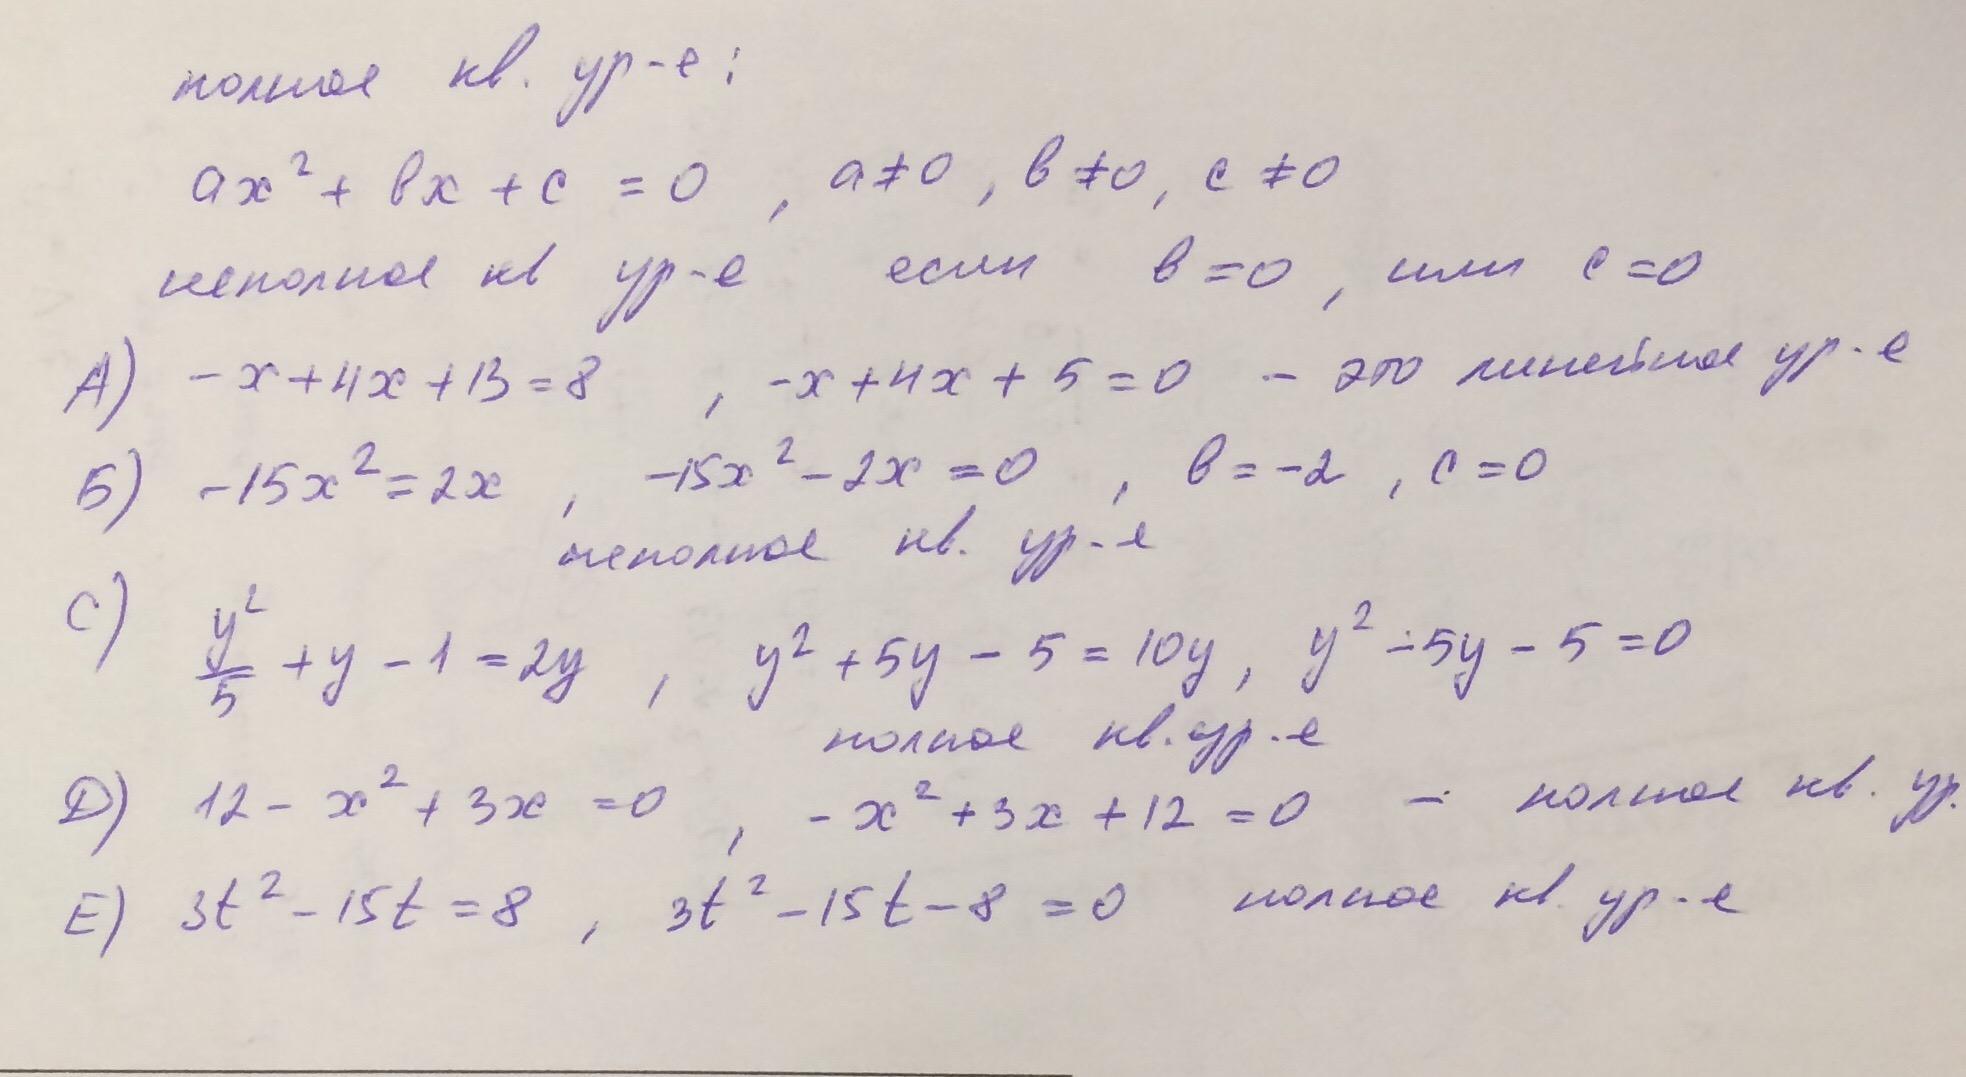 полное кв. ур-е:
ax² + bx + c = 0 , a≠0 , b≠0, c≠0
неполное кв ур-е если b=0 , или c=0
А) -x+4x+13=8 , -x+4x+5=0 - это линейное ур-е
Б) -15x²=2x , -15x²-2x=0 , b=-2 , c=0
неполное кв. ур-е
С) y²/5 +y-1=2y , y²+5y-5=10y, y²-5y-5=0
полное кв. ур-е
Д) 12-x²+3x=0 , -x²+3x+12=0 - полное кв. ур.
Е) 3t²-15t=8 , 3t²-15t-8=0 полное кв. ур-е